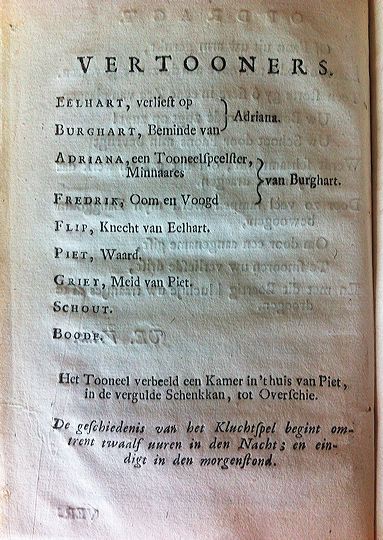 VERTOONERS.
EELHART, verliest op
Adriana.
BURGHART, Beminde van
ADRIANA, een Tooneelspeelster,
Minnares
van Burghart.
FREDRIK, Oom en Voogd
FLIP, Knecht van Eelhart.
PIET, Waard.
GRIET, Meid van Piet.
SCHOUT.
BOODE.
Het Tooneel verbeeld een Kamer in 't huis van Piet,
in de vergulde Schenkkan, tot Overschie.
De geschiedenis van het Kluchtspel begint om-
trent twaalf uuren in den Nacht; en ein-
digt in den morgenstond.